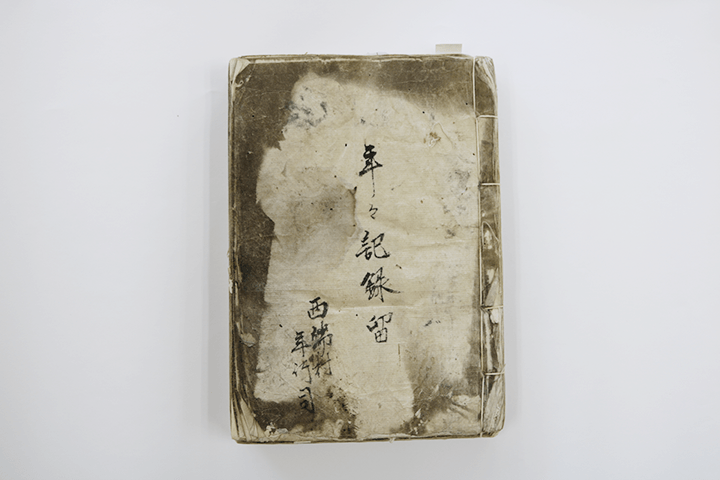 年々記録留
西端村
年行司